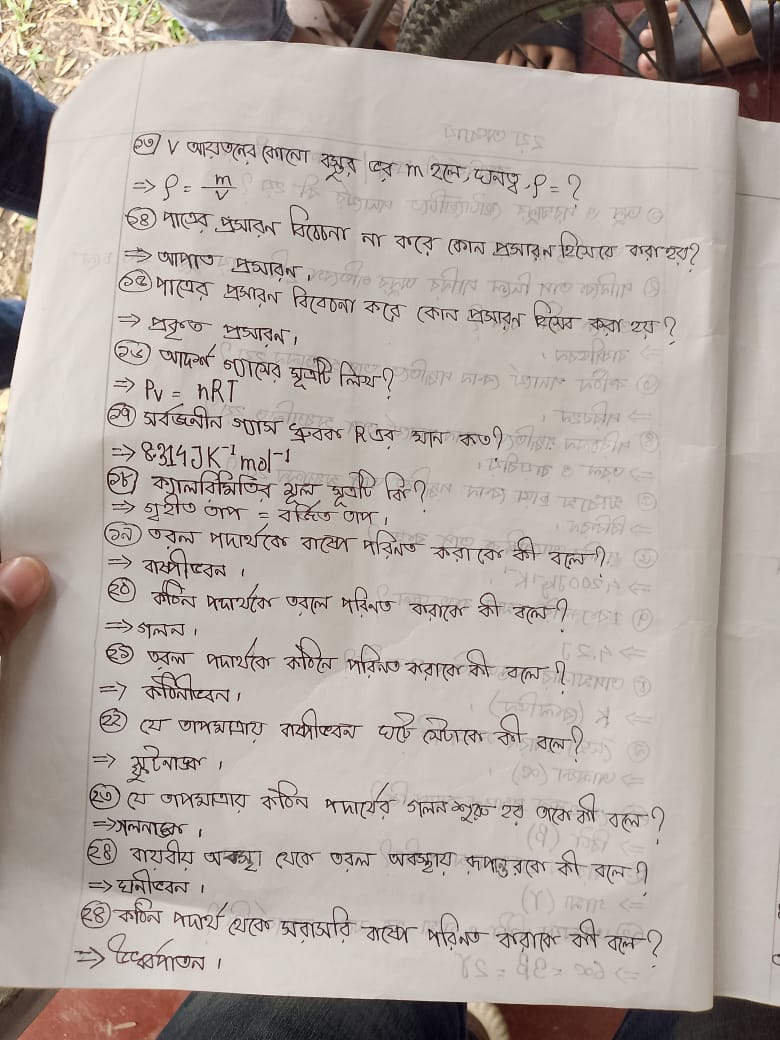 ১৩ V আয়তনের কোনো বস্তুর ভর m হলে, ঘনত্ব, ρ = ?
⇒ ρ = m/V
১৪ পাত্রের প্রসারন বিবেচনা না করে কোন প্রসারন হিসেবে করা হয়?
⇒ আপাত প্রসারন।
১৫ পাত্রের প্রসারন বিবেচনা করে কোন প্রসারন হিসেব করা হয়?
⇒ প্রকৃত প্রসারন।
১৬ আদর্শ গ্যাসের সূত্রটি লিখ?
⇒ PV = nRT
১৭ সর্বজনীন গ্যাস ধ্রুবক R এর মান কত?
⇒ 8.314 JK⁻¹ mol⁻¹
১৮ ক্যালরিমিতির মূল সূত্রটি কি?
⇒ গৃহীত তাপ = বর্জিত তাপ।
১৯ তরল পদার্থকে বাষ্পে পরিনত করাকে কী বলে?
⇒ বাষ্পীভবন।
২০ কঠিন পদার্থকে তরলে পরিনত করাকে কী বলে?
⇒ গলন।
২১ তরল পদার্থকে কঠিনে পরিনত করাকে কী বলে?
⇒ কঠিনীভবন।
২২ যে তাপমাত্রায় বাষ্পীভবন ঘটে সেটাকে কী বলে?
⇒ স্ফুটনাঙ্ক।
২৩ যে তাপমাত্রায় কঠিন পদার্থের গলন শুরু হয় তাকে কী বলে?
⇒ গলনাঙ্ক।
২৪ বায়বীয় অবস্থা থেকে তরল অবস্থায় রূপান্তরকে কী বলে?
⇒ ঘনীভবন।
২৪ কঠিন পদার্থ থেকে সরাসরি বাষ্পে পরিনত করাকে কী বলে?
⇒ ঊর্ধ্বপাতন।